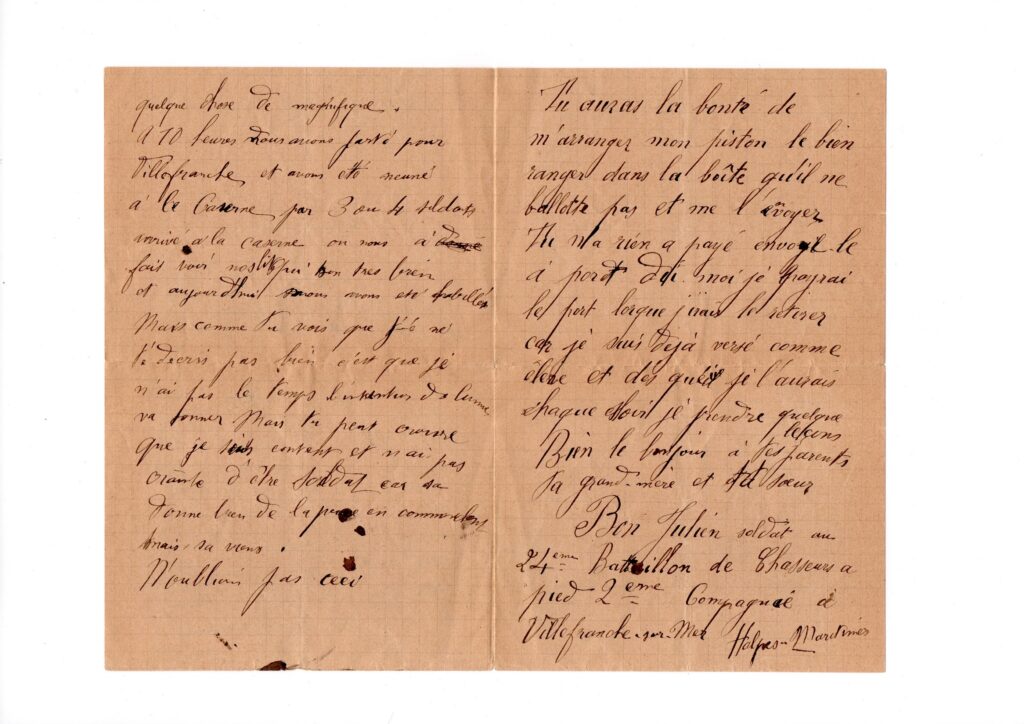 quelque chose de magnifique.
A 10 heures nous avons parté pour
Villefranche et avons été mené
à la Caserne par 3 ou 4 soldats
arrivé a la caserne on nous à
fait voir nos lits qui son tres bien
et aujourd'hui nous avons été habillés
Mais comme tu vois que je ne
t'écris pas bien c'est que je
n'ai pas le temps l'extention de la lumie
va sonner Mais tu peut croire
que je suis content et n'ai pas
crainte d'être soldat car sa
donne bien de la peine en commendans
mais sa vient.
N'oubliais pas ceci
Tu auras la bonté de
m'arranger mon piston le bien
ranger dans la boîte qu'il ne
ballotte pas et me l'envoyer
Tu n'a rien a payé envoye le
à port dû. moi je payrai
le port lorque j'irais le retirer
car je suis déjà versé comme
élève et dès que je l'aurais
chaque soir je prendre quelque
leçons
Bien le bonjour à tes parents
ta grand-mère et ta sœur
Bon Julien soldat au
24eme Battaillon de Chasseurs a
pied 2eme Compagnie à
Villefranche-sur-Mer Halpes-Maritimes